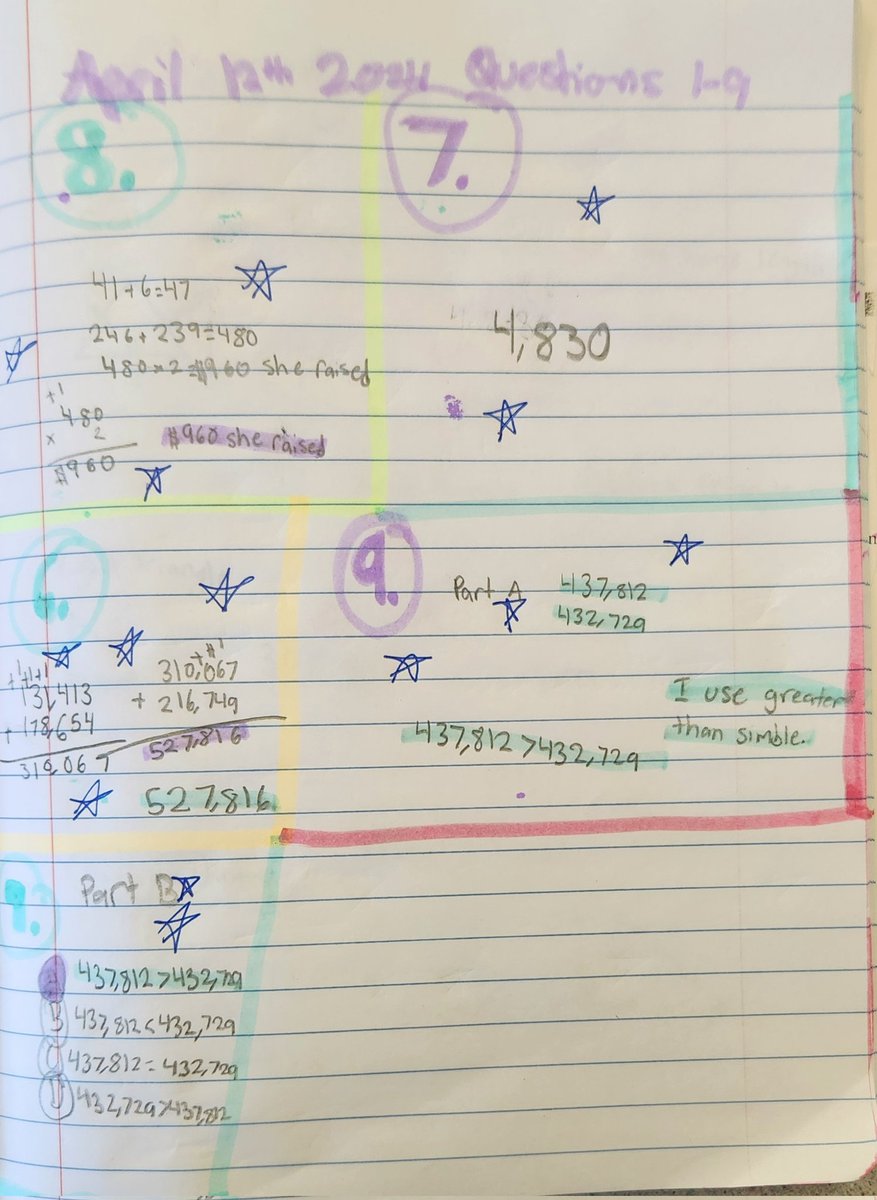 April 12th 2024 Questions 1-9
8.
41+6=47
246+239=480
480×2=$960 she raised
+1
480
× 2
$960
$960 she raised
7.
4,830
6.
+1+1+1
131,413
+178,654
310,067
+1 1
310,067
+ 216,749
527,816
527,816
9.
Part A
437,812
432,729
437,812>432,729
I use greater
than simble.
9.
Part B
A 437,812>432,729
B 437,812<432,729
C 437,812=432,729
D 432,729>437,812